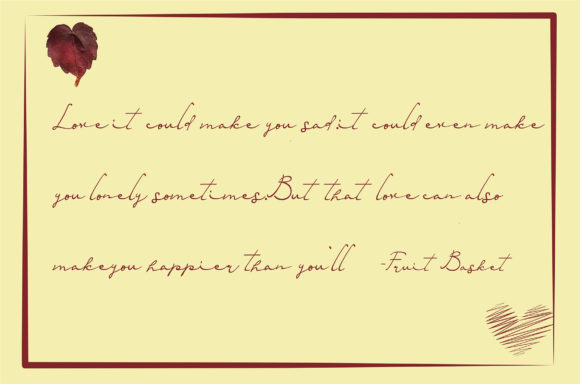 Love it could make you sad.it could even make
you lonely sometimes.But that love can also
makeyou happier than you'll -Fruit Basket